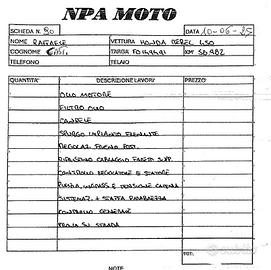 NPA MOTO
SCHEDA N. 80 DATA 10-06-25
NOME RAFFAELE VETTURA HONDA REBEL 450
COGNOME TARGA KM 50.982
TELEFONO TELAIO
QUANTITA' DESCRIZIONE LAVORI PREZZO
OLIO MOTORE
FILTRO OLIO
CANDELE
SPURGO IMPIANTO FRENANTE
REGOLAZ. FRENO POST.
RIPRISTINO CABLAGGIO FARETTI SUPP.
CONTROLLO REGOLATORE E STATORE
PULIZIA, INGRASS. E TENSIONE CATENA
SISTEMAZ. + STAFFA PARABREZZA
CONTROLLO GENERALE
PROVA SU STRADA
TOT:
NOTE
subito